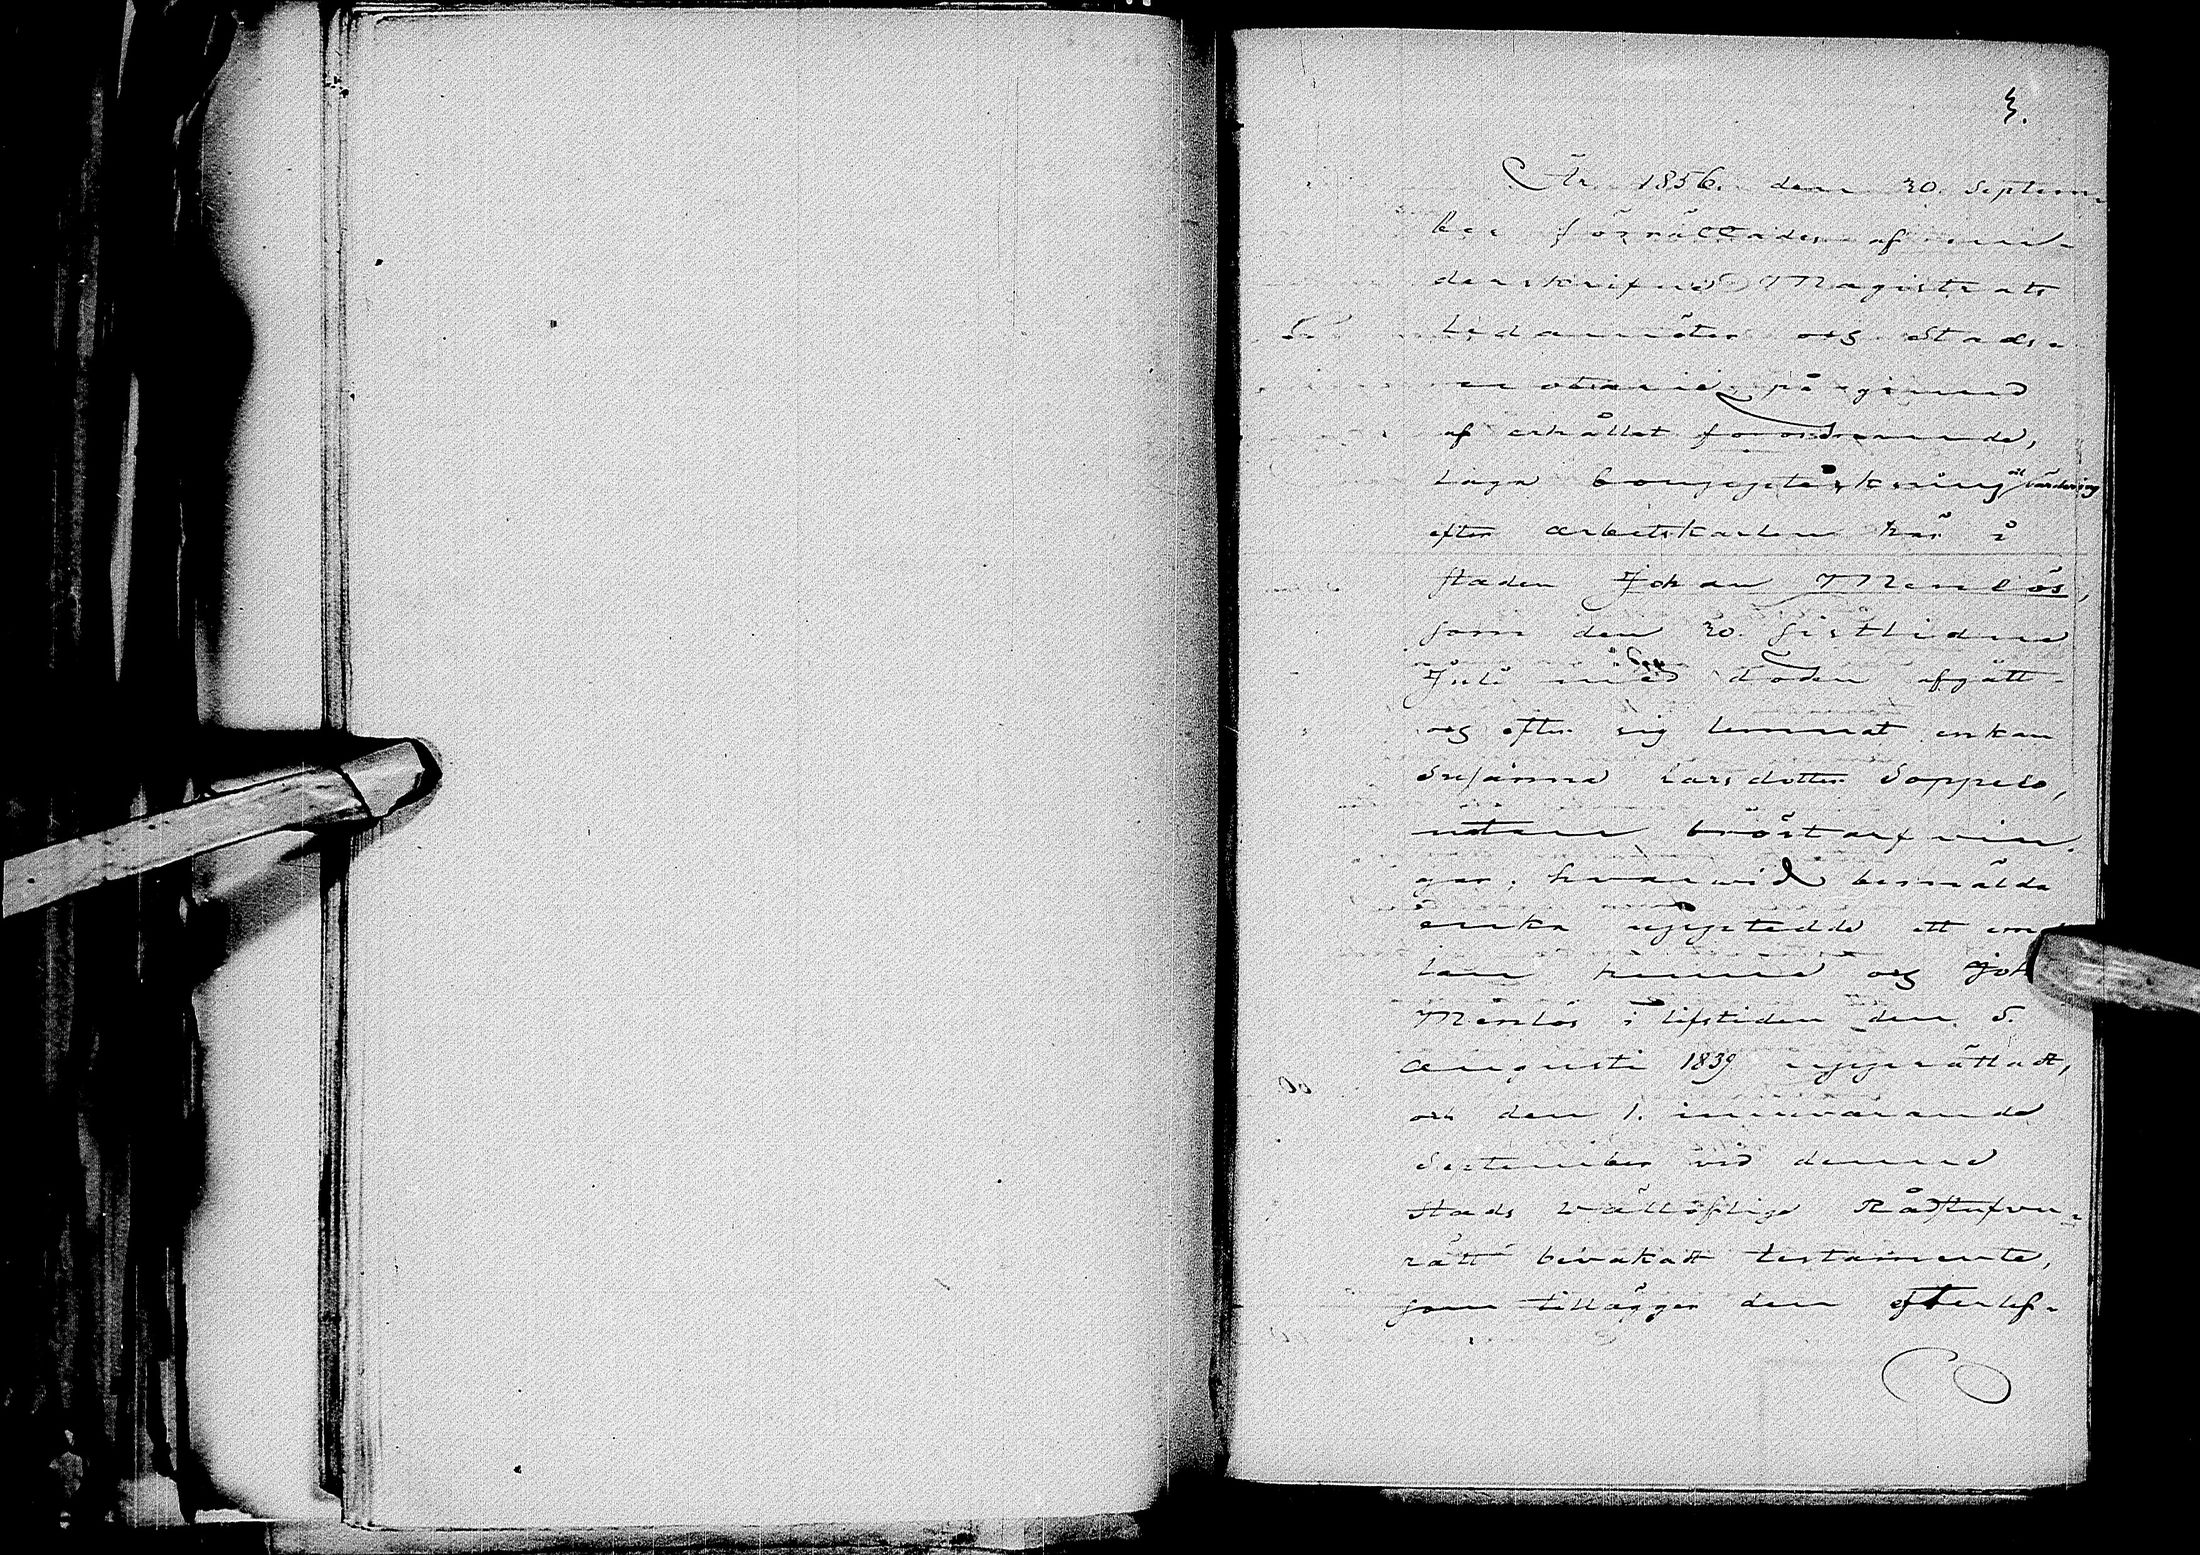 3.
År 1856. den 30. Septem-
ber förrättades af un-
derskrifne Magistrats
Ledamöter och Stads-
notarie, på grund
af erhållet förordnande,
laga bouppteckning och värdering
efter arbetskarlen här i
staden Johan Menlös,
som den 30. sistlidne
Juli med döden afgått
och efter sig lemnat enkan
Susanna Larsdotter Soppelo,
utan bröstarfvin-
gar; hvarvid bemälda
enka uppstedde ett em
lan henne och Joh
Menlös i lifstiden den 5.
Augusti 1839 upprättadt,
och den 1. innevarande
September vid denne
stads vällofliga Rådstufvu-
rätt bevakadt testamente,
som tillägger den efterlef-